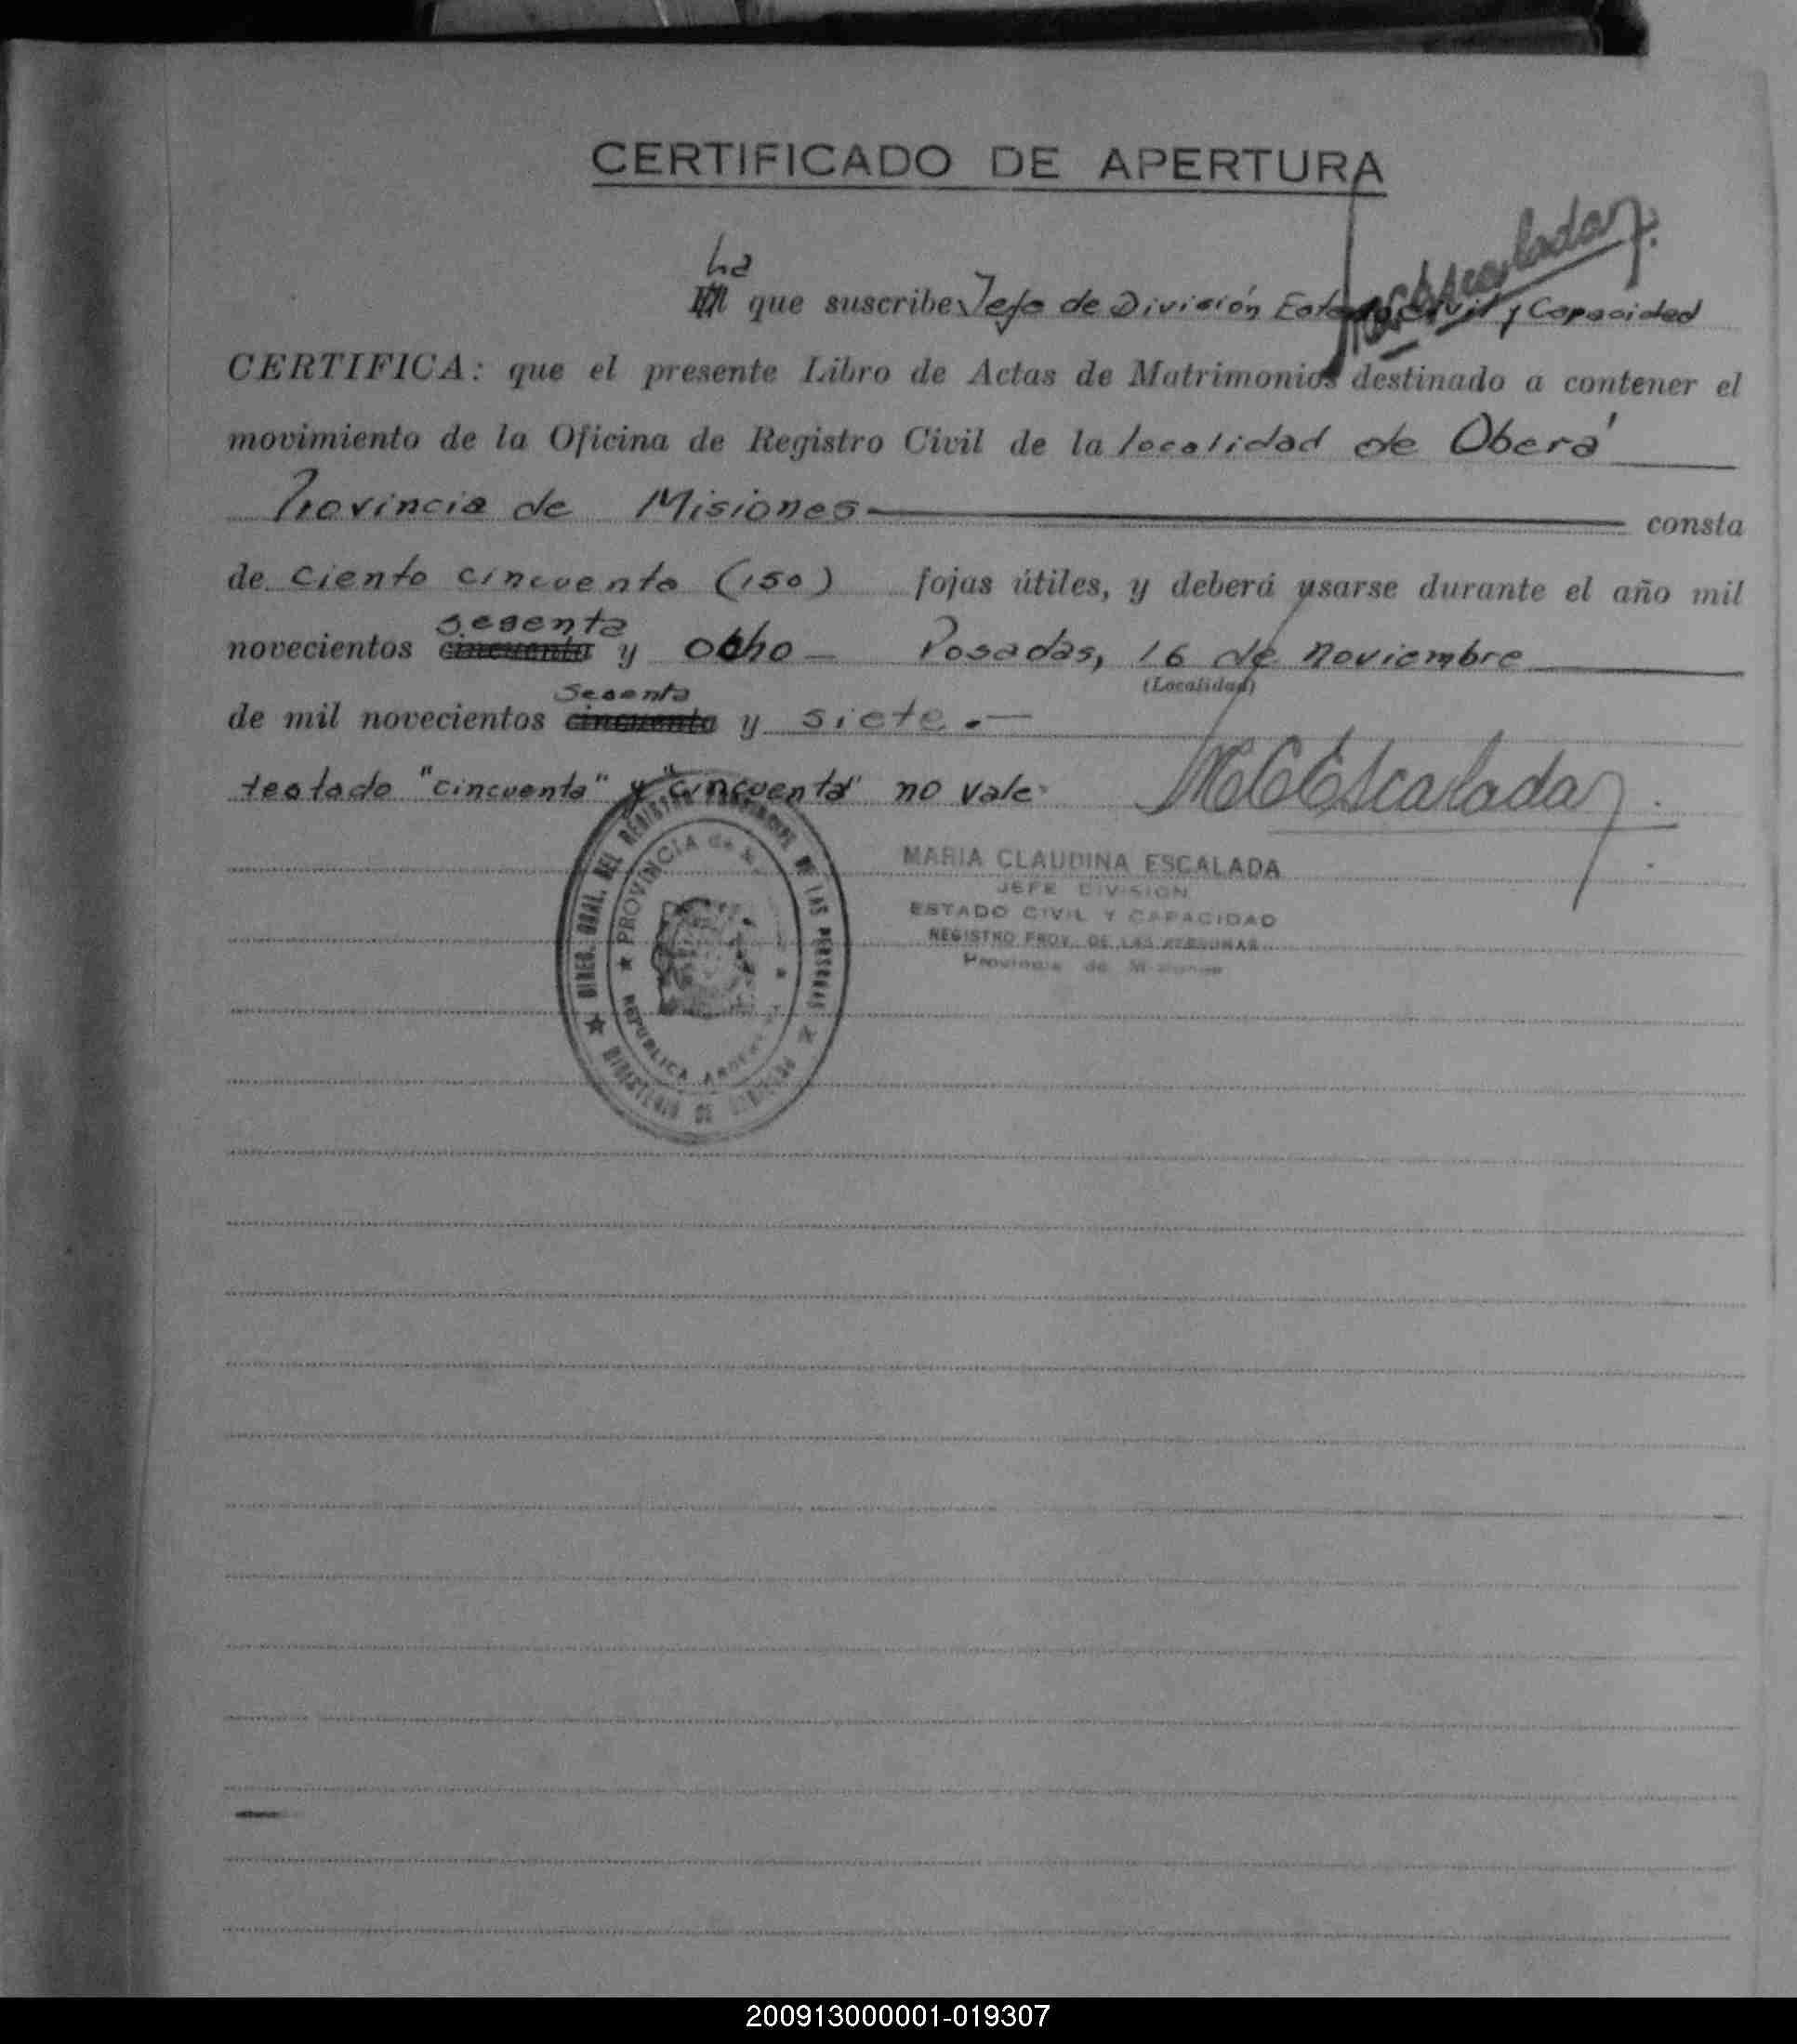 CERTIFICADO DE APERTURA
La
El que suscribe Jefe de División Estado Civil y Capacidad
MCEscalada
CERTIFICA: que el presente Libro de Actas de Matrimonios destinado a contener el
movimiento de la Oficina de Registro Civil de la localidad de Oberá
Provincia de Misiones consta
de ciento cincuenta (150) fojas útiles, y deberá usarse durante el año mil
sesenta
novecientos cincuenta y ocho Posadas, 16 de noviembre
(Localidad)
sesenta
de mil novecientos cincuenta y siete.-
testado "cincuenta" y "cincuenta" no vale.
MCEscalada
MARIA CLAUDINA ESCALADA
JEFE DIVISION
ESTADO CIVIL Y CAPACIDAD
REGISTRO PROV. DE LAS PERSONAS
Provincia de Misiones
DIREC. GRAL. DEL REGISTRO PROVINCIAL DE LAS PERSONAS
MINISTERIO DE GOBIERNO
PROVINCIA de
REPUBLICA ARGENTINA
200913000001-019307